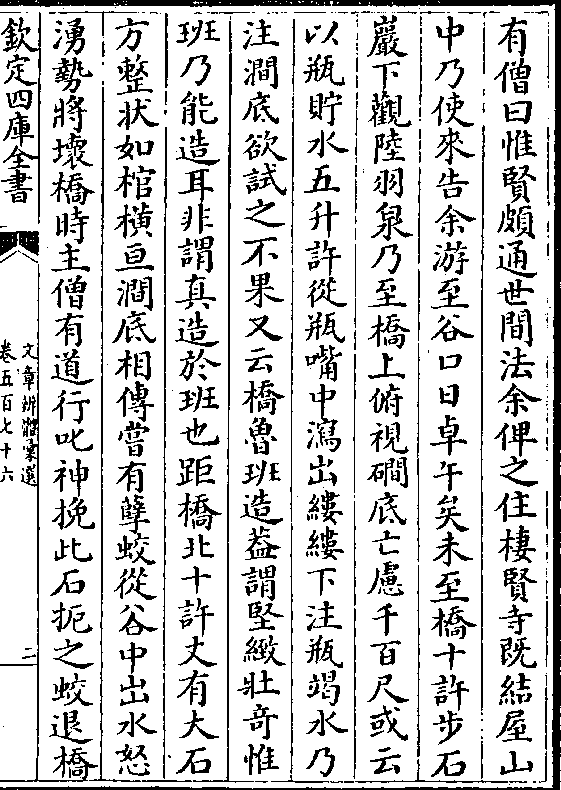 有僧曰惟賢頗通世間法余俾之住棲賢寺既結屋山
中乃使來告余游至谷口日卓午矣未至橋十許步石
巖下觀陸羽泉乃至橋上俯視磵底亡慮千百尺或云
以瓶貯水五升許從瓶嘴中瀉出縷縷下注瓶竭水乃
注澗底欲試之不果又云橋魯班造葢謂堅緻壯竒惟
班乃能造耳非謂真造於班也距橋北十許丈有大石
方整状如棺橫亘澗底相傳嘗有孽蛟從谷中出水怒
湧勢將壞橋時主僧有道行叱神挽此石扼之蛟退橋
欽定四庫全書
文章辨體彙選
卷五百七十六
二